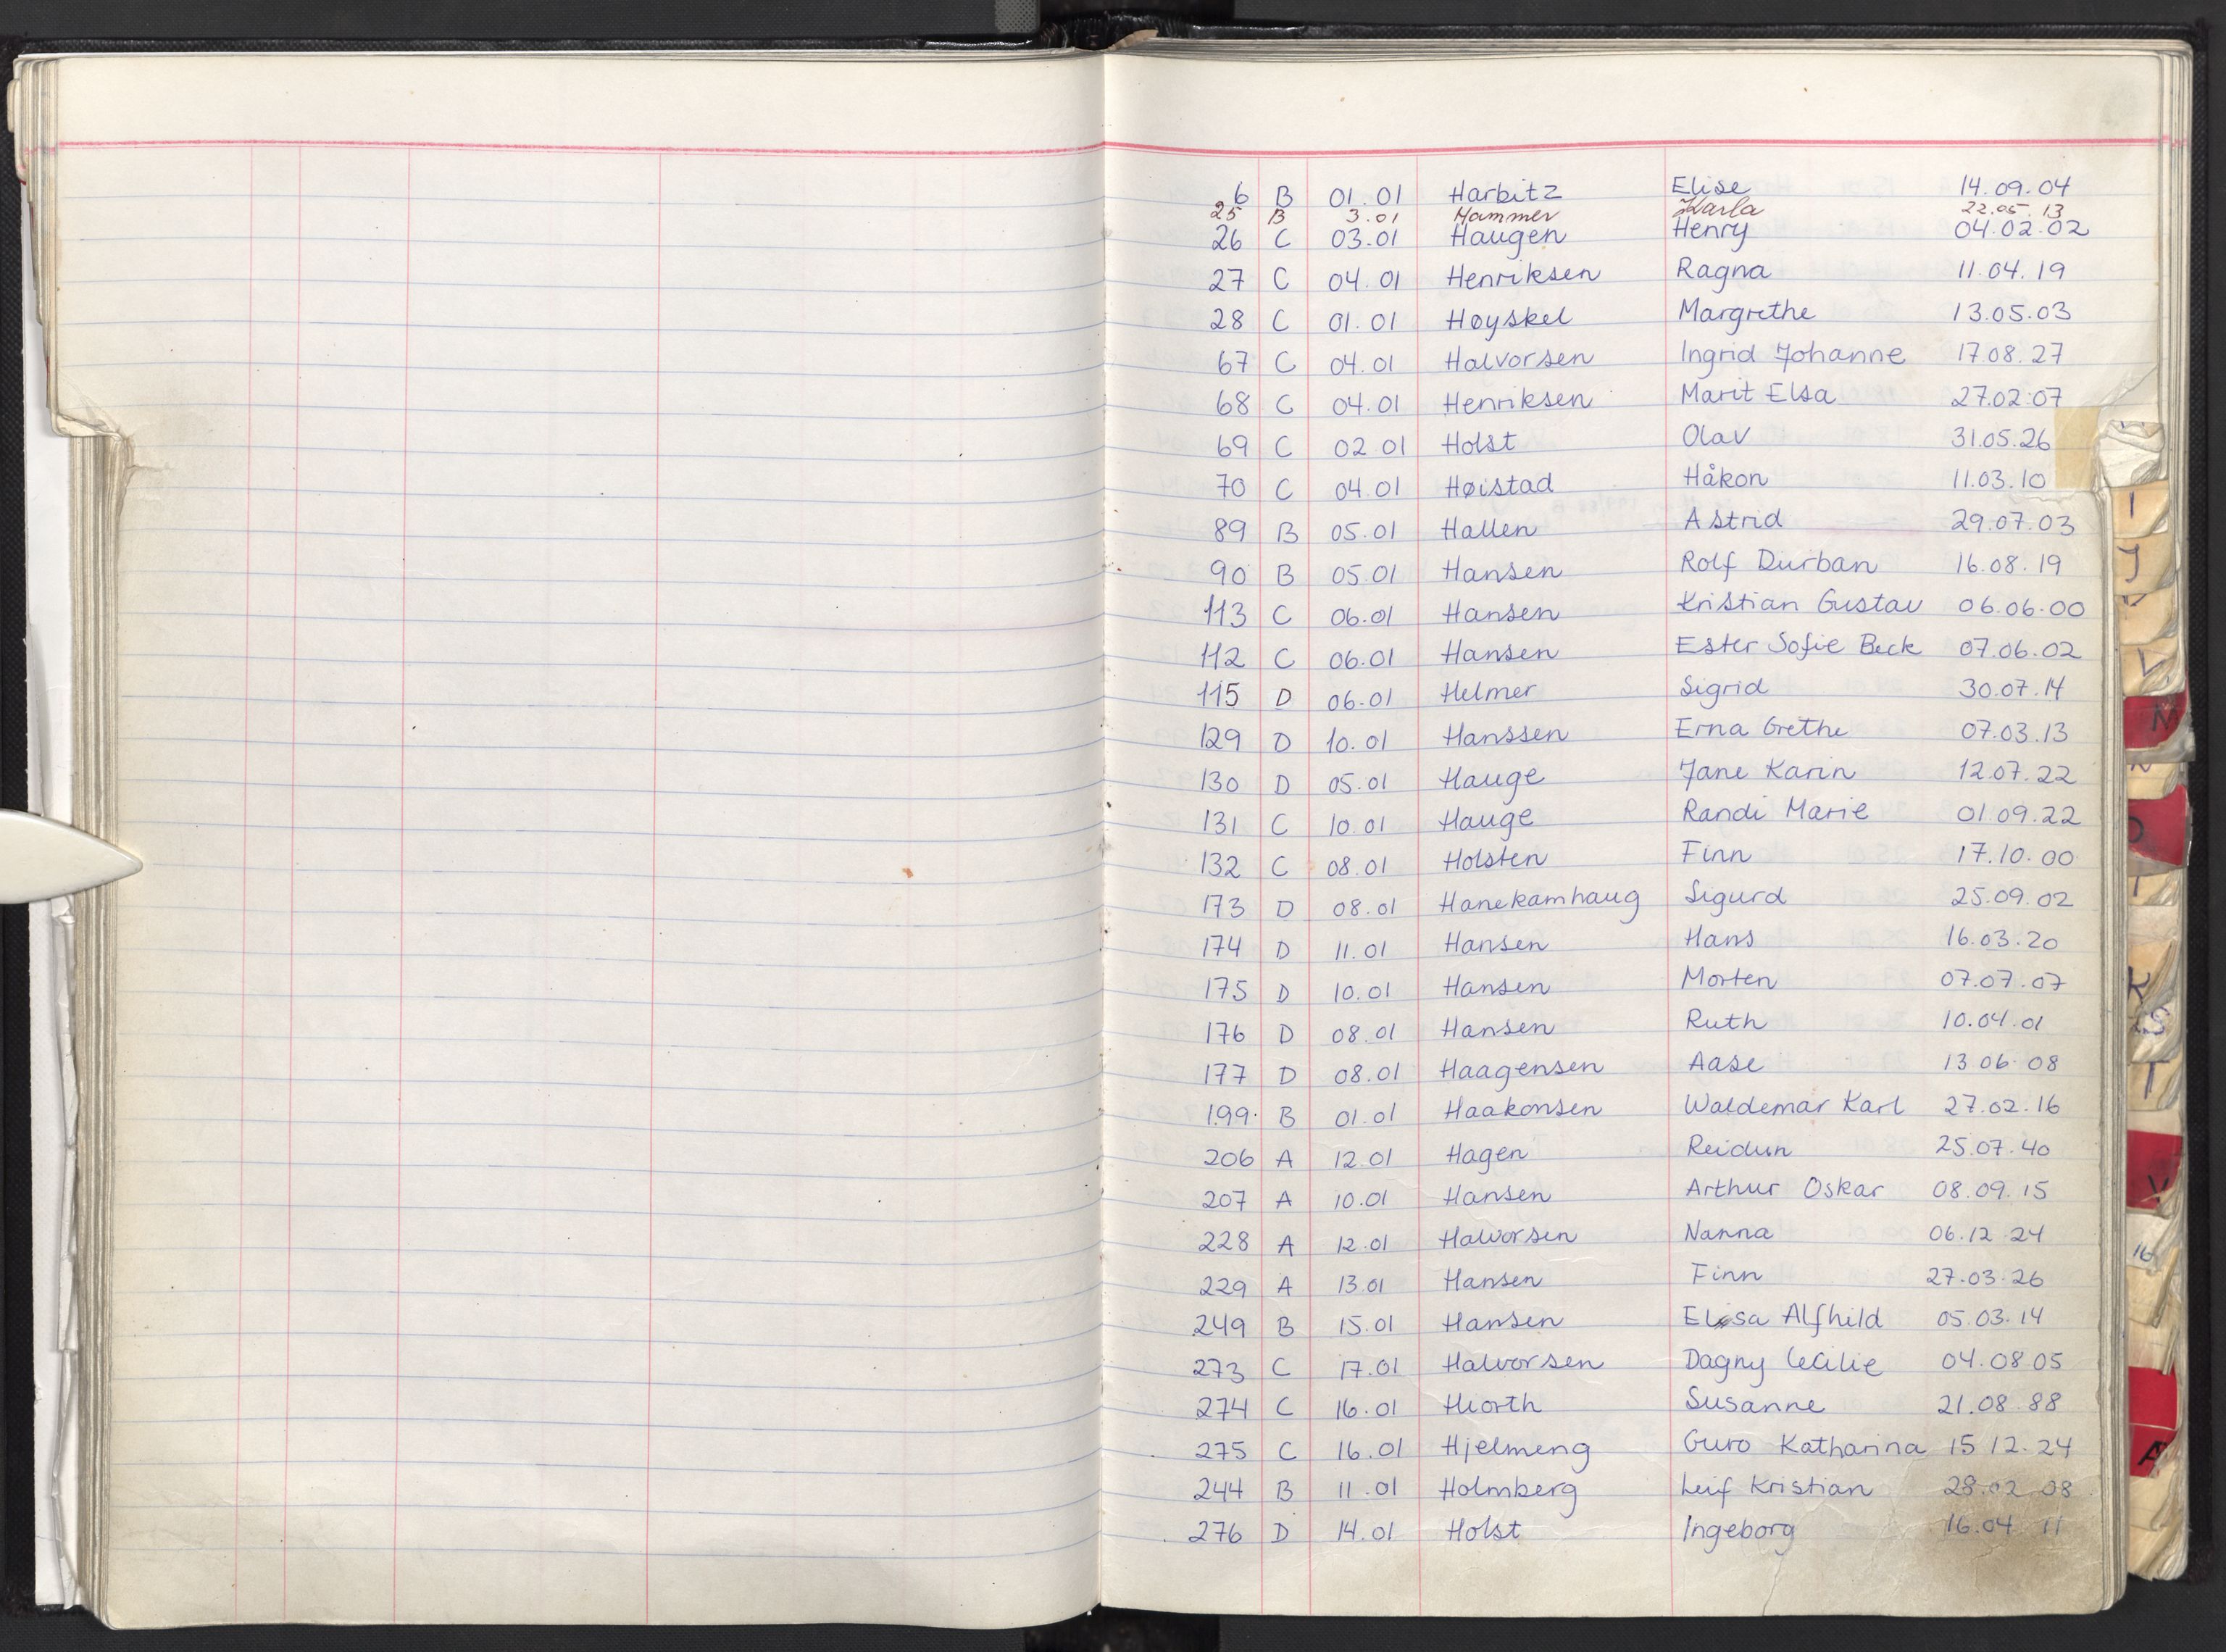 6 B 01.01 Harbitz Elise 14.09.04
25 B 3.01 Hammer Karla 22.05.13
26 C 03.01 Haugen Henry 04.02.02
27 C 04.01 Henriksen Ragna 11.04.19
28 C 01.01 Høyskel Margrethe 13.05.03
67 C 04.01 Halvorsen Ingrid Johanne 17.08.27
68 C 04.01 Henriksen Marit Elsa 27.02.07
69 C 02.01 Holst Olav 31.05.26
70 C 04.01 Høistad Håkon 11.03.10
89 B 05.01 Hallen Astrid 29.07.03
90 B 05.01 Hansen Rolf Durban 16.08.19
113 C 06.01 Hansen Kristian Gustav 06.06.00
112 C 06.01 Hansen Ester Sofie Beck 07.06.02
115 D 06.01 Helmer Sigrid 30.07.14
129 D 10.01 Hanssen Erna Grethe 07.03.13
130 D 05.01 Hauge Jane Karin 12.07.22
131 C 10.01 Hauge Randi Marie 01.09.22
132 C 08.01 Holsten Finn 17.10.00
173 D 08.01 Hanekamhaug Sigurd 25.09.02
174 D 11.01 Hansen Hans 16.03.20
175 D 10.01 Hansen Morten 07.07.07
176 D 08.01 Hansen Ruth 10.04.01
177 D 08.01 Haagensen Aase 13.06.08
199 B 01.01 Haakonsen Waldemar Karl 27.02.16
206 A 12.01 Hagen Reidun 25.07.40
207 A 10.01 Hansen Arthur Oskar 08.09.15
228 A 12.01 Halvorsen Nanna 06.12 24
229 A 13.01 Hansen Finn 27.03.26
249 B 15.01 Hansen Elsa Alfhild 05.03.14
273 C 17.01 Halvorsen Dagny Cecilie 04.08.05
274 C 16.01 Hiorth Susanne 21.08.88
275 C 16.01 Hjelmeng Guro Katharina 15 12.24
244 B 11.01 Holmberg Leif Kristian 28.02.08
276 D 14.01 Holst Ingeborg 16.04 11
I
J
M
K
S
T